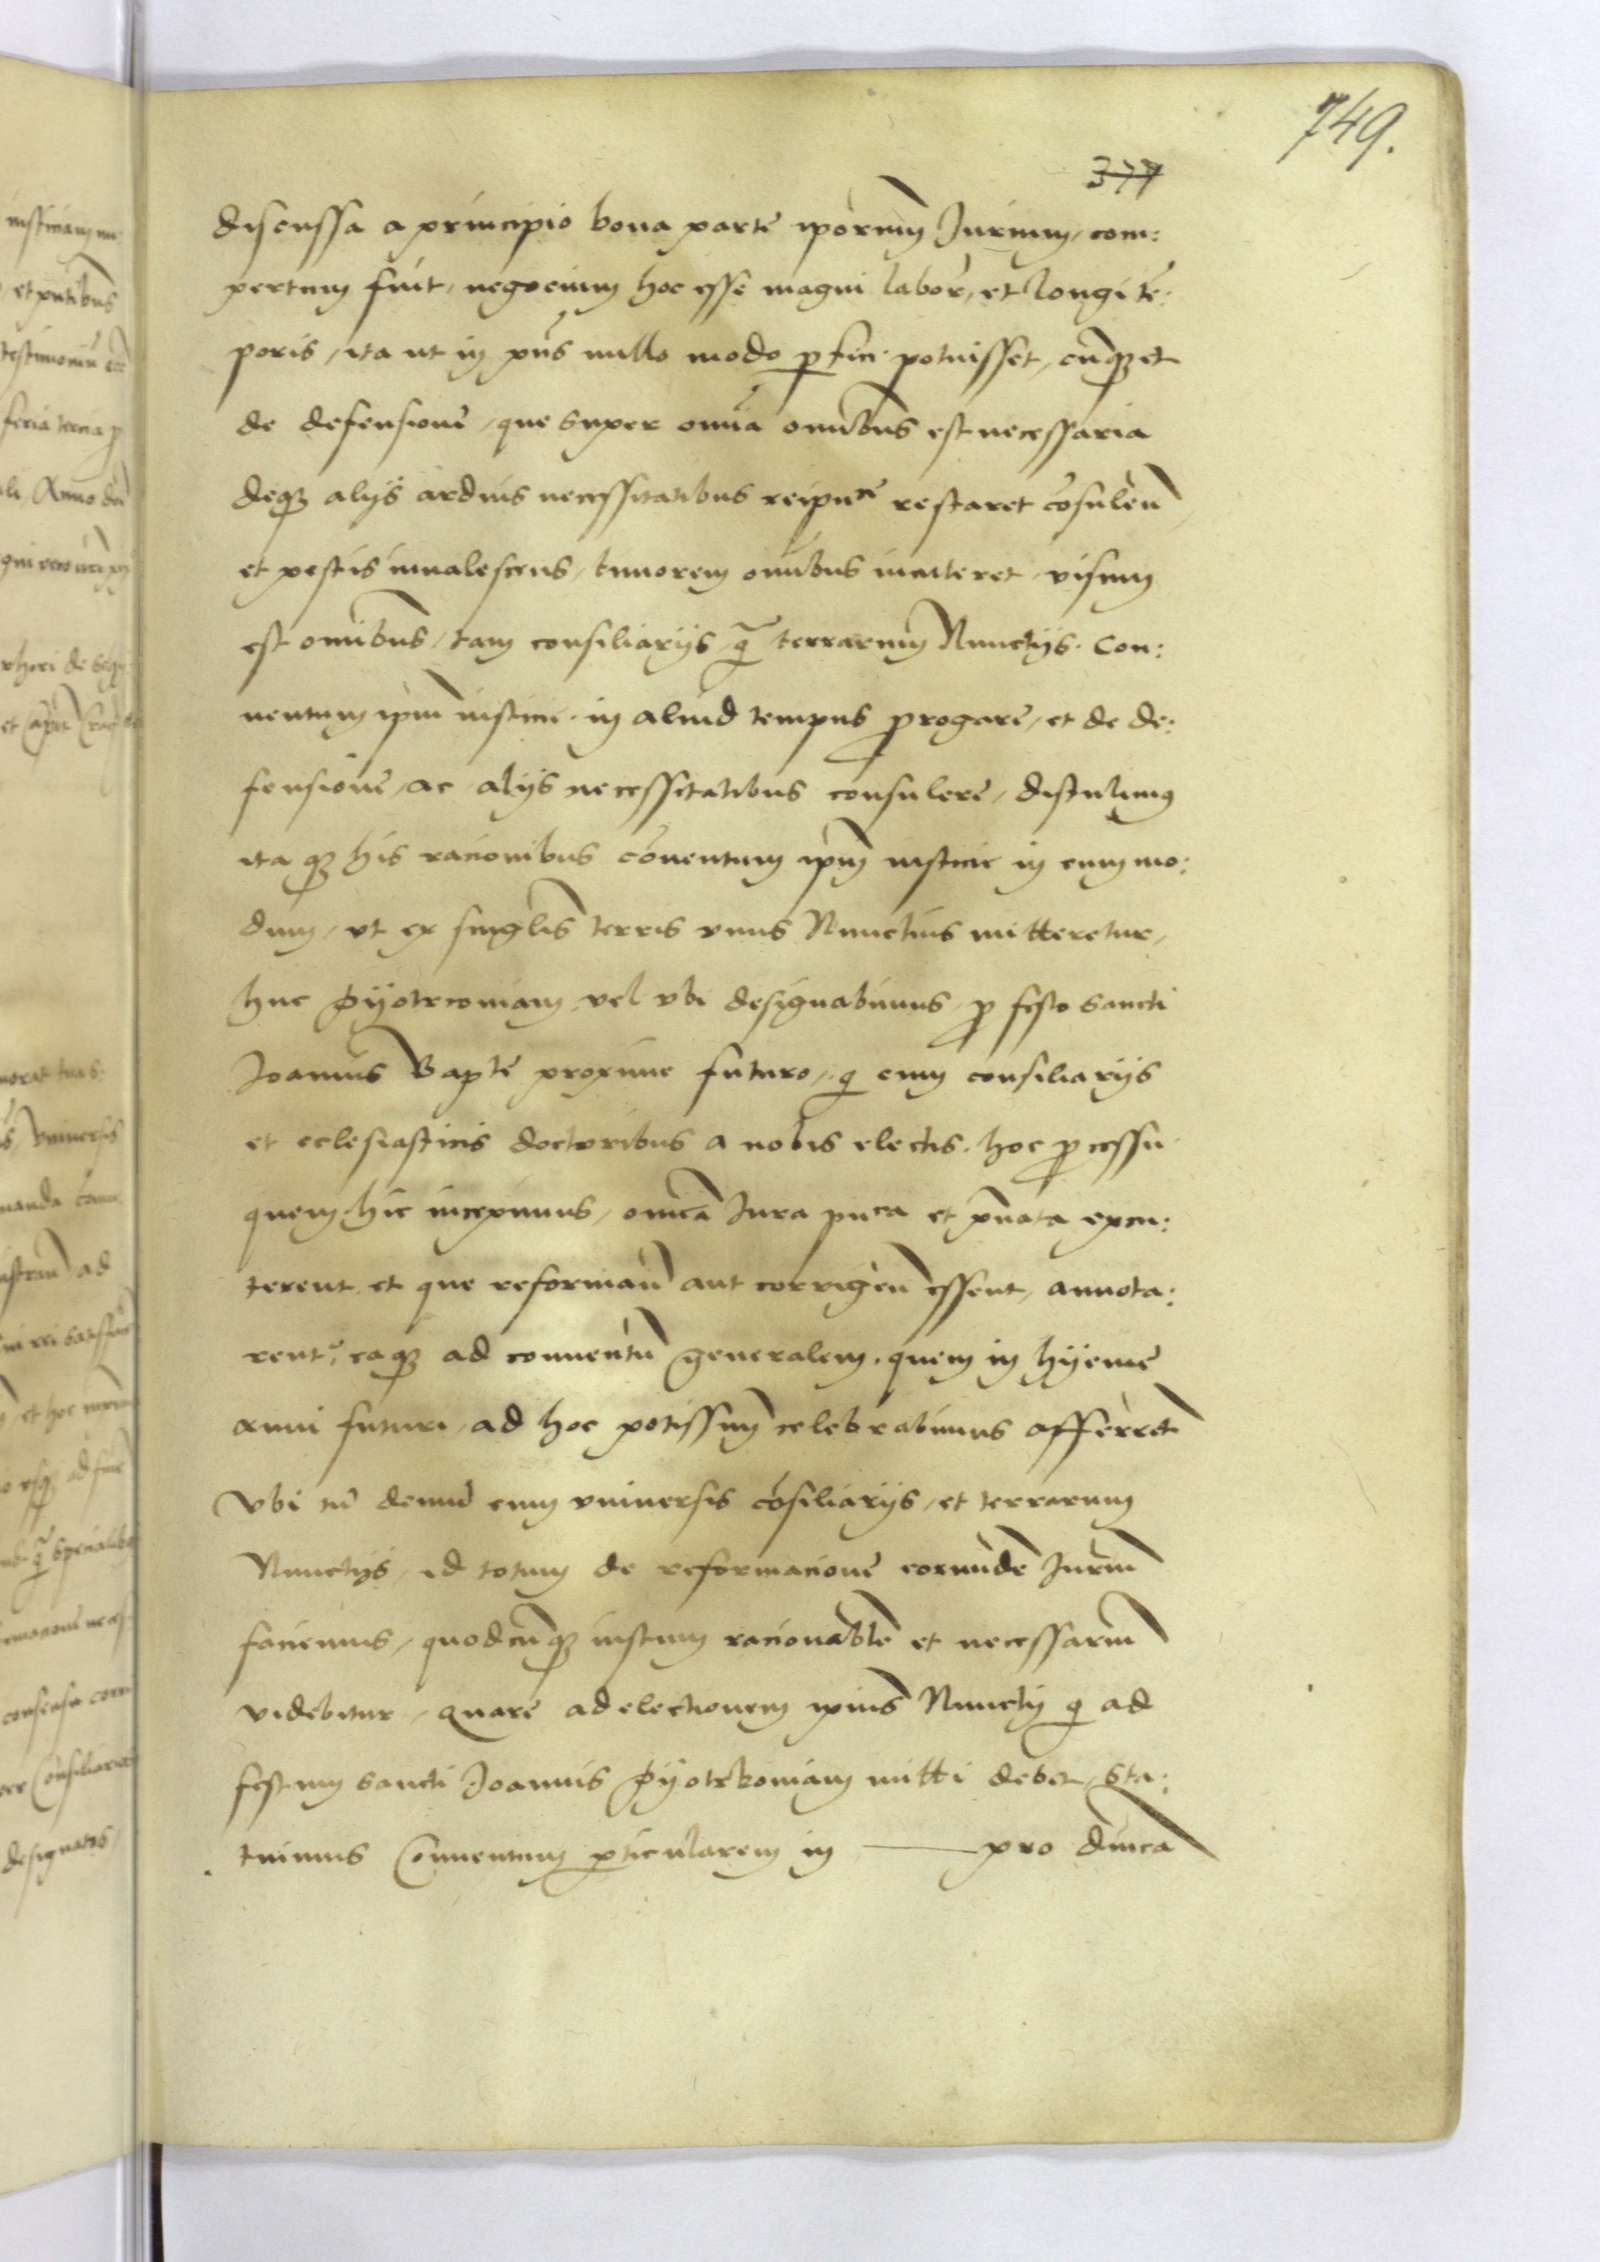 749.
377
discussa a principio bona parte ipōrum Jurium, com:
pertum fuit, negocium hoc esse magni labor̄, et longi tē:
poris, ita ut in pn̄s nullo modo perfici potuisset, cūqȝ et
de defensione, que super omīa omībus est necessaria
deqȝ alijs arduis necessitatibus reipu͡ce restaret cōsulen̄
et pestis inualescens, timorem omībus incuteret, visum
est omībus, tam consiliarijs q̄ terrarum Nunctijs. Con:
uentum ip̄m iusticie in aliud tempus prorogare, et de de:
fensione, ac alijs necessitatibus consulere, distulimus
itaqȝ his racionibus cōuentum ip̄m iusticie in eum mo:
dum, vt ex singlis terris vnus Nunctius mitteretur,
huc Pyotrcouiam, vel vbi designabimus, pro festo sancti
Joannis Bapte proxime futuro, qi cum consiliarijs
et eclesiasticis doctoribus a nobis electis, hoc processu
quem hic incepimus, omēa Jura puca et pruata excu:
terent, et que reforman̄ aut corrigen̄ essent, annota:
rent, eaqȝ ad conuentū generalem, quem in hyeme
anni futuri, ad hoc potissimū celebrabimus afferret
Vbi tū demū cum vniuersis cōsiliarijs, et terrarum
Nunctijs, id totum de reformacione eorundē Jurium
faciemus, quodcūqȝ iustum racionable et necessarium
videbitur, Quare ad electionem ipius Nunctij qi ad
festum sancti Joannis Pyotrkouiam mitti debet, Sta:
tuimus Conuentum perticularem in —— pro dn̄ica